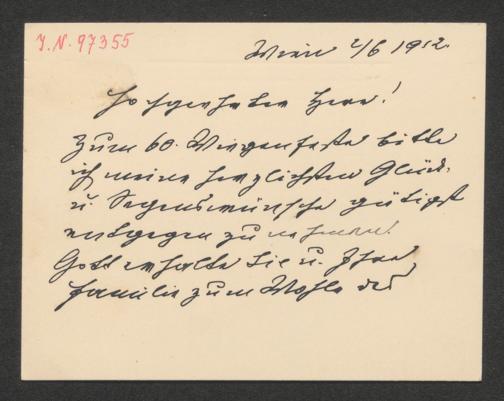 J.N. 97355
Wien 2/6 1912.
Hochgeehrter Herr!
Zum 60. Wiegenfeste bitte
ich meine herzlichsten Glück-
u. Segenswünsche gütigst
entgegen zu nehmen!
Gott erhalte Sie u. Ihre
Familie zum Wohle der